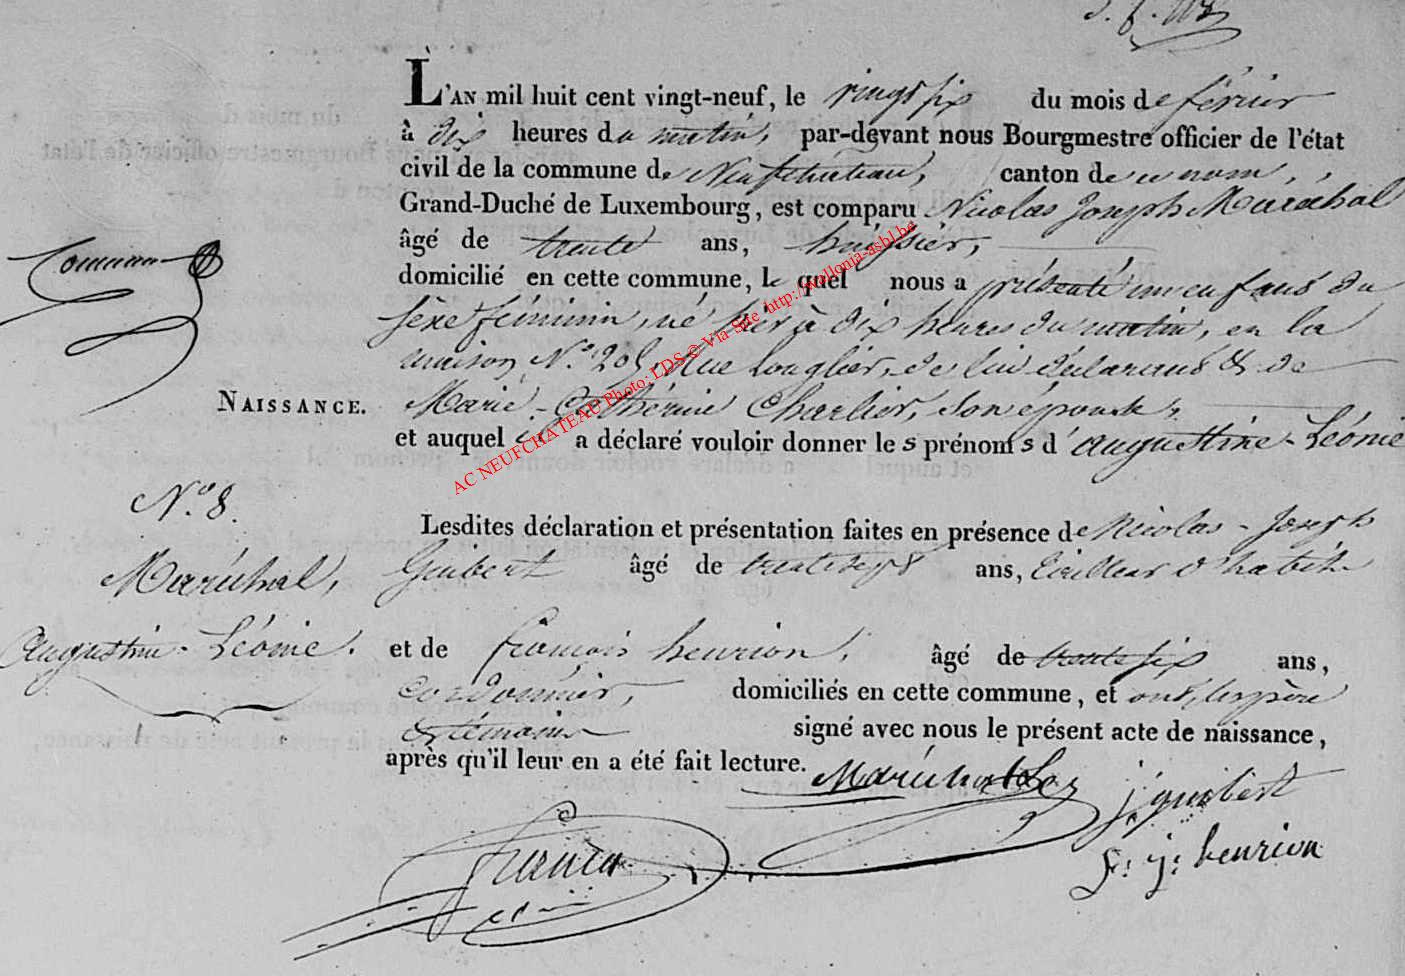 L'AN mil huit cent vingt-neuf, le vingt six du mois de février
à dix heures du matin, par-devant nous Bourgmestre officier de l'état
civil de la commune de Neufchateau, canton de ce nom,
Grand-Duché de Luxembourg, est comparu Nicolas Joseph Maréchal
âgé de trente ans, huissier,
domicilié en cette commune, le quel nous a présenté un enfant du
sexe féminin, né hier à dix heures du matin, en la
maison N.o Rue Longlier, de lui déclarant & de
NAISSANCE. Marie-Catherine Charlier, son épouse,
et auquel il a déclaré vouloir donner les prénoms d'augustine-Léonie
N.o 8.
Lesdites déclaration et présentation faites en présence de Nicolas-Joseph
Maréchal, Guibert âgé de trente sept ans, tailleur d'habits
augustine-Léonie. et de françois henrion, âgé de trente six ans,
cordonnier, domiciliés en cette commune, et ont, les père
et témoins signé avec nous le présent acte de naissance,
après qu'il leur en a été fait lecture.
Maréchal
j guibert
f: j: henrion
AC NEUFCHATEAU Photo: LDS © Via Site http://wallonia-asbl.be